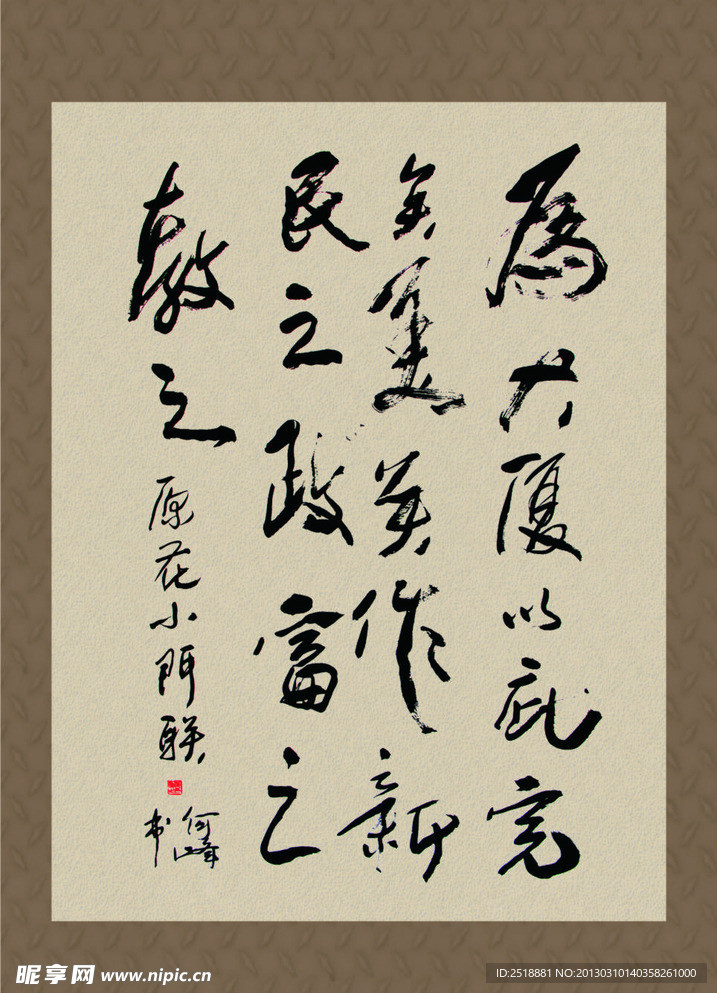 為大厦以庇完
矣美矣作新
民之政富之
教之
原花小門联
何峰
书
昵享网 www.nipic.cn
ID:2518881 NO:20130310140358261000